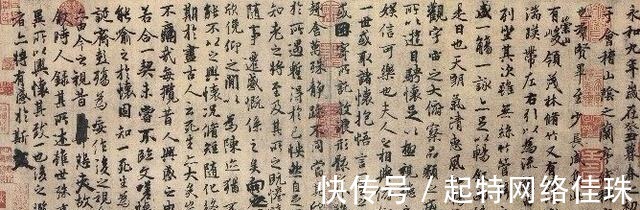 永和九年歲在癸丑暮春
于會稽山陰之蘭亭
也群賢畢至少長咸集
有崇山峻領茂林脩竹又有
湍暎帶左右引以為流
列坐其次雖無絲竹
盛一觴一詠亦足以暢
是日也天朗氣清惠風
觀宇宙之大俯察品類
所以遊目騁懷足以極
娛信可樂也夫人之相
一世或取諸懷抱悟言
或因寄所託放浪形骸
趣舍萬殊靜躁不同
於所遇暫得於己怏然自足
知老之將至及其所之既惓
隨事遷感慨係之矣向之
欣俛仰之閒以為陳迹猶不
能不以之興懷況脩短隨化終
期於盡古人云死生亦大矣豈
不痛哉每攬昔人興感之由
若合一契未嘗不臨文嗟悼不
能喻之於懷固知一死生為虛
誕齊彭殤為妄作後之視今
亦由今之視昔悲夫故列
敘時人錄其所述雖世殊事
異所以興懷其致一也後之攬
者亦將有感於斯文
快传号/起特网络佳珠